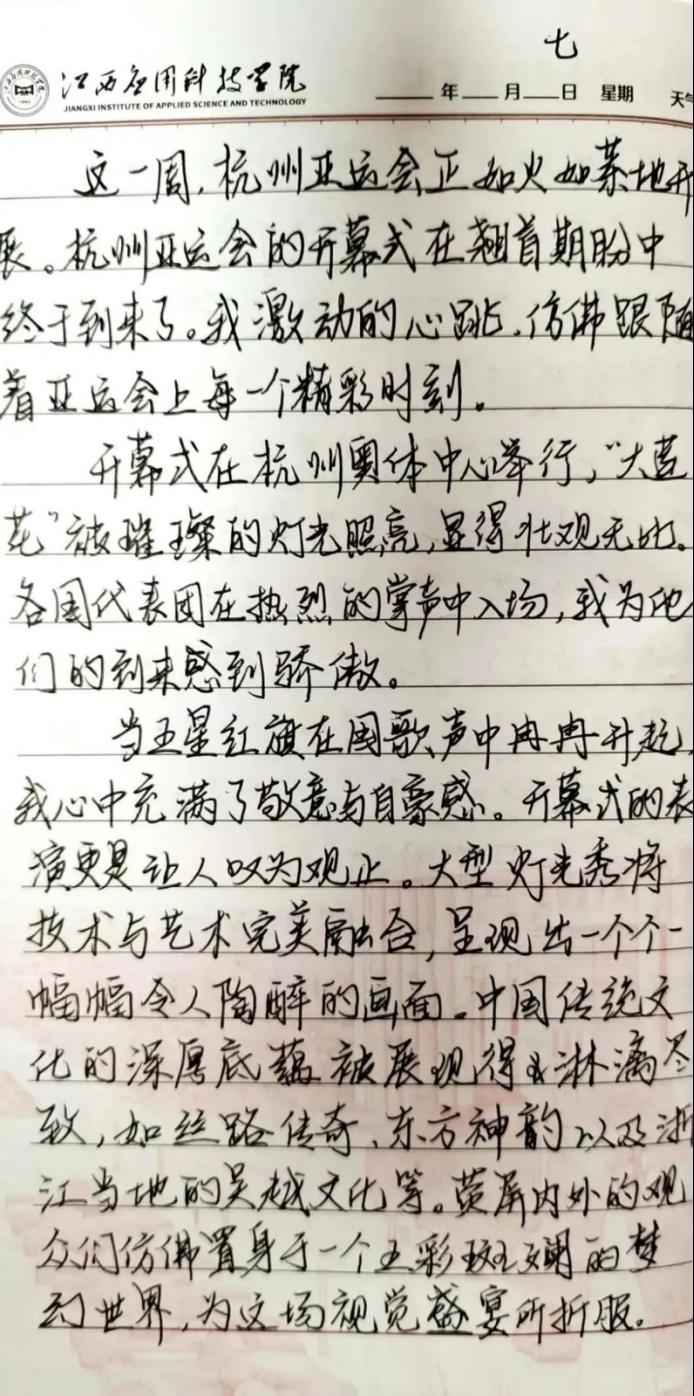 七
江西应用科技学院
JIANGXI INSTITUTE OF APPLIED SCIENCE AND TECHNOLOGY
年 月 日 星期 天气
这一周,杭州亚运会正如火如荼地开
展。杭州亚运会的开幕式在翘首期盼中
终于到来了。我激动的心跳,仿佛跟随
着亚运会上每一个精彩时刻。
开幕式在杭州奥体中心举行,“大莲
花”被璀璨的灯光照亮,显得壮观无比。
各国代表团在热烈的掌声中入场,我为他
们的到来感到骄傲。
当五星红旗在国歌声中冉冉升起,
我心中充满了敬意与自豪感。开幕式的表
演更是让人叹为观止。大型灯光秀将
技术与艺术完美融合,呈现出一个个一
幅幅令人陶醉的画面。中国传统文
化的深厚底蕴被展现得淋漓尽
致,如丝路传奇、东方神韵以及浙
江当地的吴越文化等。荧屏内外的观
众们仿佛置身于一个五彩斑斓的梦
幻世界,为这场视觉盛宴所折服。